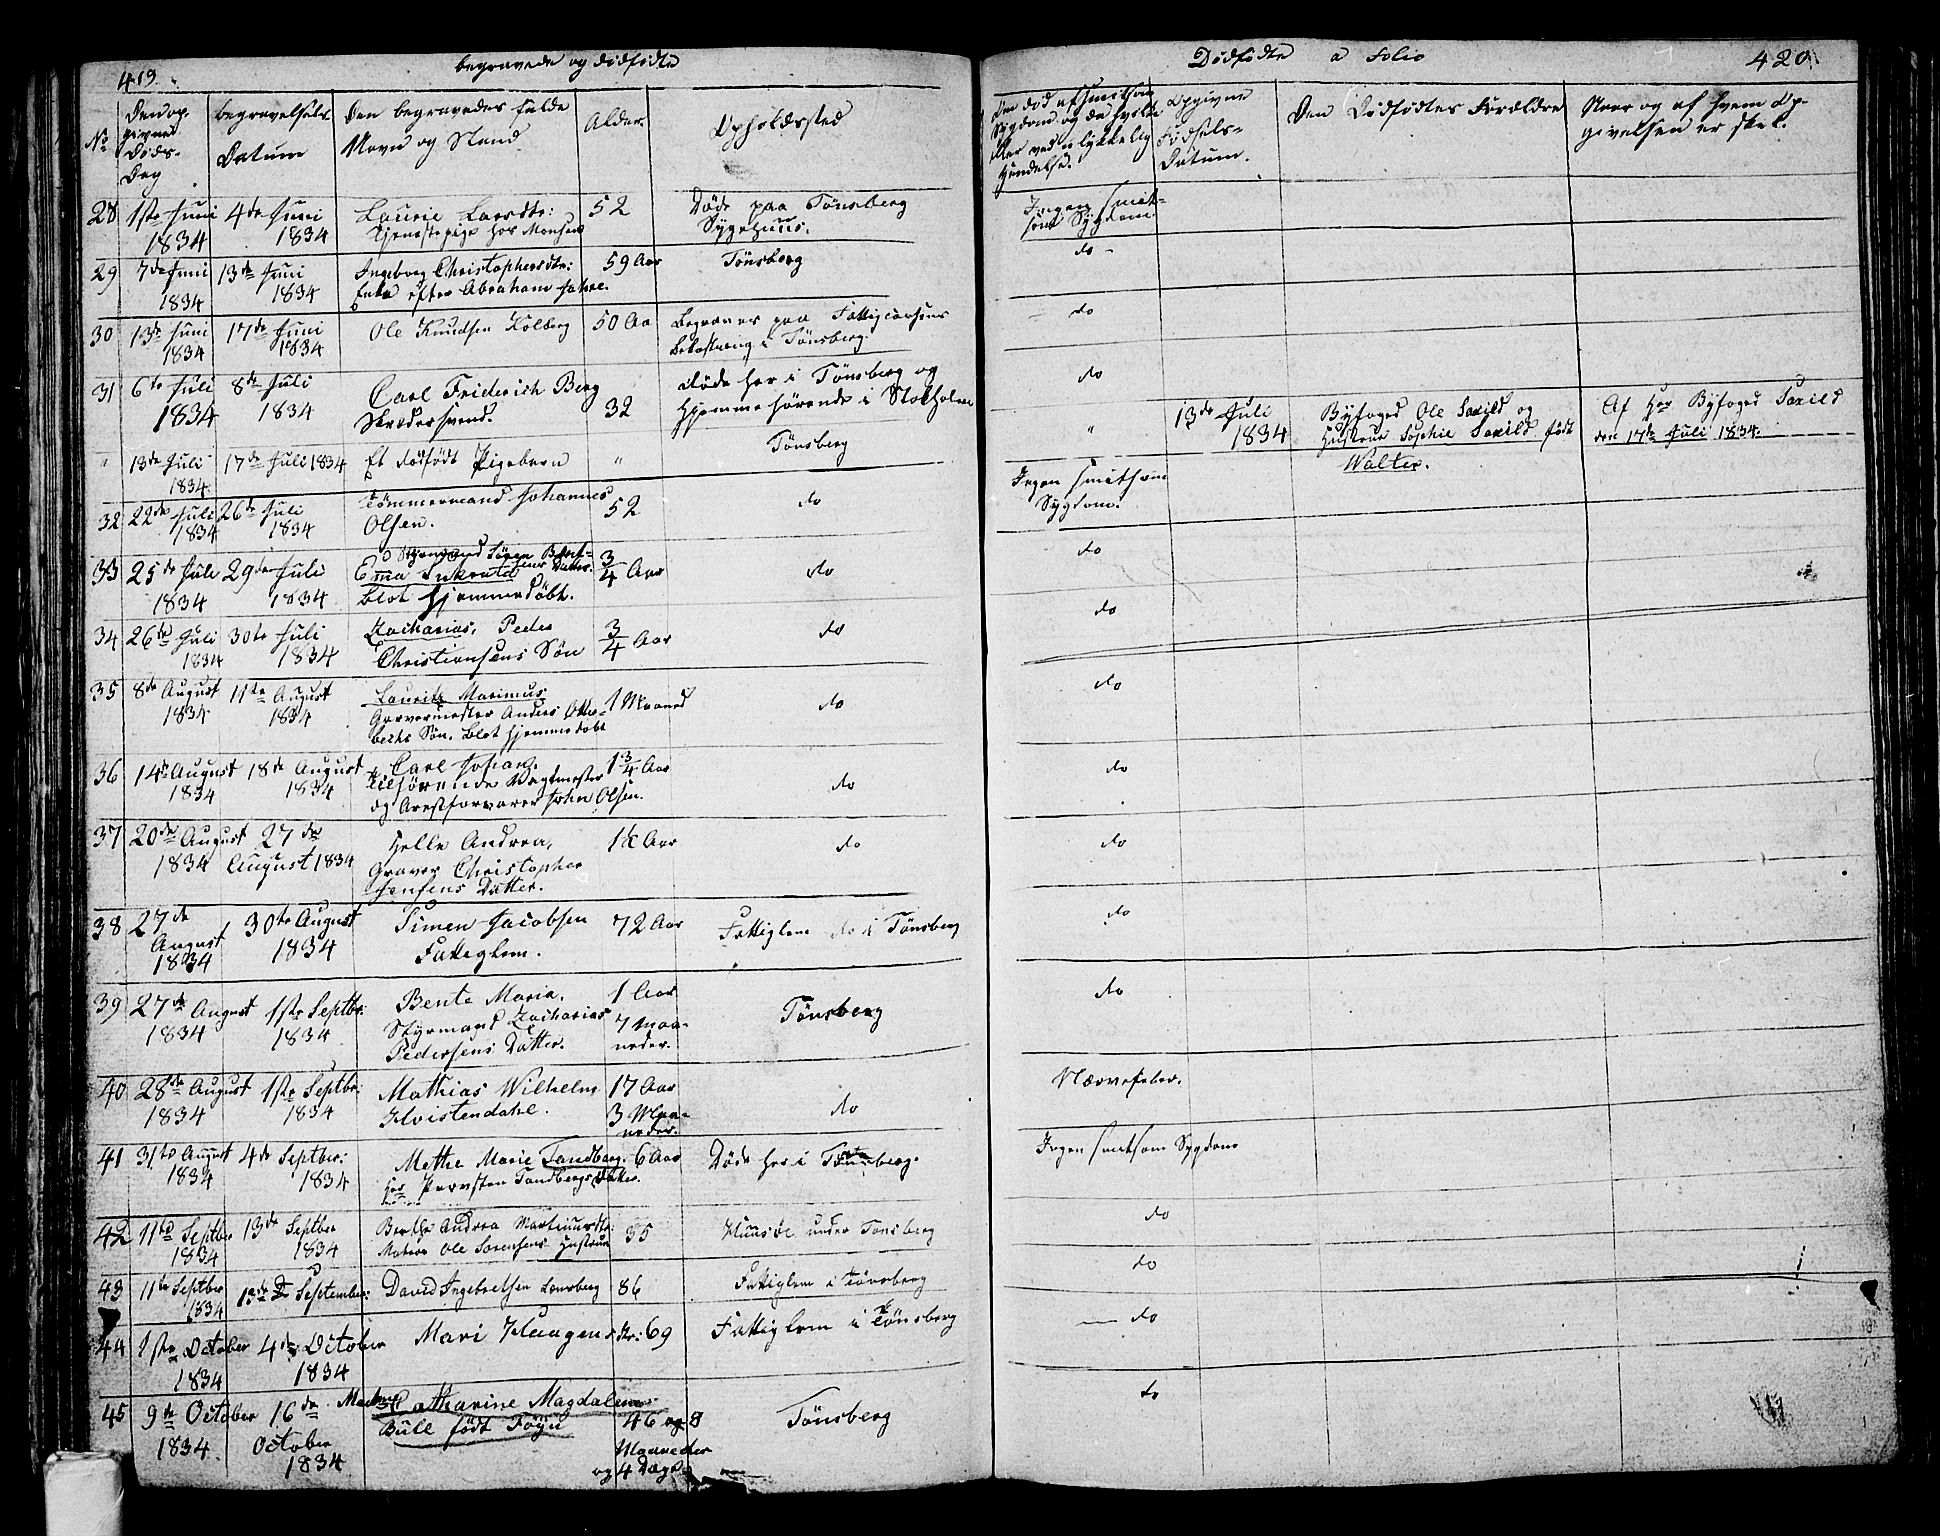 419.
begravede og dødfødte
No
Den op-
givne
Døds-
Dag
begravelsels
Datum
Den begravedes fulde
Navn og Stand.
Alder
Opholdssted
28
1ste Juni
1834
4de Juni
1834
Laurie Larsdtr:
Tjenestepige hos Monsen
52
Døde paa Tönsberg
Sygehuus.
29
7de Juni
1834
13de Juni
1834
Ingeborg Christophersdtr:
Enke efter Abraham
59 Aar
Tönsberg
30
13de Juni
1834
17de Juni
1834
Ole Knudsen Kolberg
50 Aar
Begraves paa Fattigcassens
Bekostning i Tönsberg.
31
6te Juli
1834
8de Juli
1834
Carl Friderich Berg
Skrædersvend.
32
døde her i Tönsberg og
hjemmehörende i Stokholm
"
13de Juli
1834
17de Juli 1834
Et dödfödt Pigebarn
"
Tönsberg
32
22de Juli
1834
26de Juli
1834
Tömmermand Johannes
Olsen.
52
do
33
25de Juli
1834
29de Juli
1834
Styrmand Sören
Datter.
Ema
blot hjemmedöbt.
3/4 Aar
do
34
26de Juli
1834
30te Juli
1834
Zacharias, Peder
Christiansens Sön
3/4 Aar
do
35
8de August
1834
11te August
1834
Lauritz Marinus
Garvermester Anders Otter-
bechs Sön. blot hjemmedøbt
1 Maaned
do
36
14de August
1834
18de August
1834
Carl Johan,
tilhörende Vagtmester
og Arestforvarer John Olsen.
1 3/4 Aar
do
37
20de August
1834
27de
August 1834
Helle Andrea,
Graver Christopher
Jensens Datter.
1½ Aar
do
38
27de
August
1834
30te August
1834
Simen Jacobsen
Fattiglem.
72 Aar
Fattiglem do i Tönsberg
39
27de August
1834
1ste Septbr:
1834
Bente Maria,
Styrmand Zacharias
Pedersens Datter.
1 Aar
7 Maa-
neder.
Tönsberg
40
28de August
1834
1ste Septbr.
1834
Mathias Wilhelm
Hvistendahl.
17 Aar
3 Maa-
neder.
do
41
31te August
1834
4de Septbr:
1834
Methe Marie Tandberg.
Her Provsten Tandbergs Datter.
6 Aar
Döde her i Tönsberg.
42
11te Septbr
1834
13de Septbr
1834
Berthe Andrea Martinusdtr:
Matros Ole Sørensens Hustrue
35
Huusöe under Tønsberg
43
11te Septbr
1834
13de September:
David Ingebretsen Lensberg
86
Fattiglem i Tönsberg
44
1ste October
1834
4de October
1834
Mari Haagensdtr:
69
Fattiglem i Tönsberg
45
9de October
1834.
16de
October
1834
Madame Catharine Magdalene
Bull født Föyn
46 og 8
Maaneder
og 4 Dage
Tönsberg
Dödfödte a folio
420.
Om död af smitsom
Sygdom og da hvilken
eller ved ulykkelig
Hændelse.
Opgivne
Födsels-
Datum.
Den Dödfödtes Forældre
Naar og af hvem Op-
givelsen er skel.
Ingen smit-
som Sygdom.
do
do
do
"
13de Juli
1834
Byfoged Ole Saxild og
Hustrue Sophie Saxild født
Walter.
Af Her Byfoged Saxild
den 17de Juli 1834.
Ingen smitsom
Sygdom.
do
do
do
do
do
do
do
Nærvefeber.
Ingen smitsom Sygdom
do
do
do
do